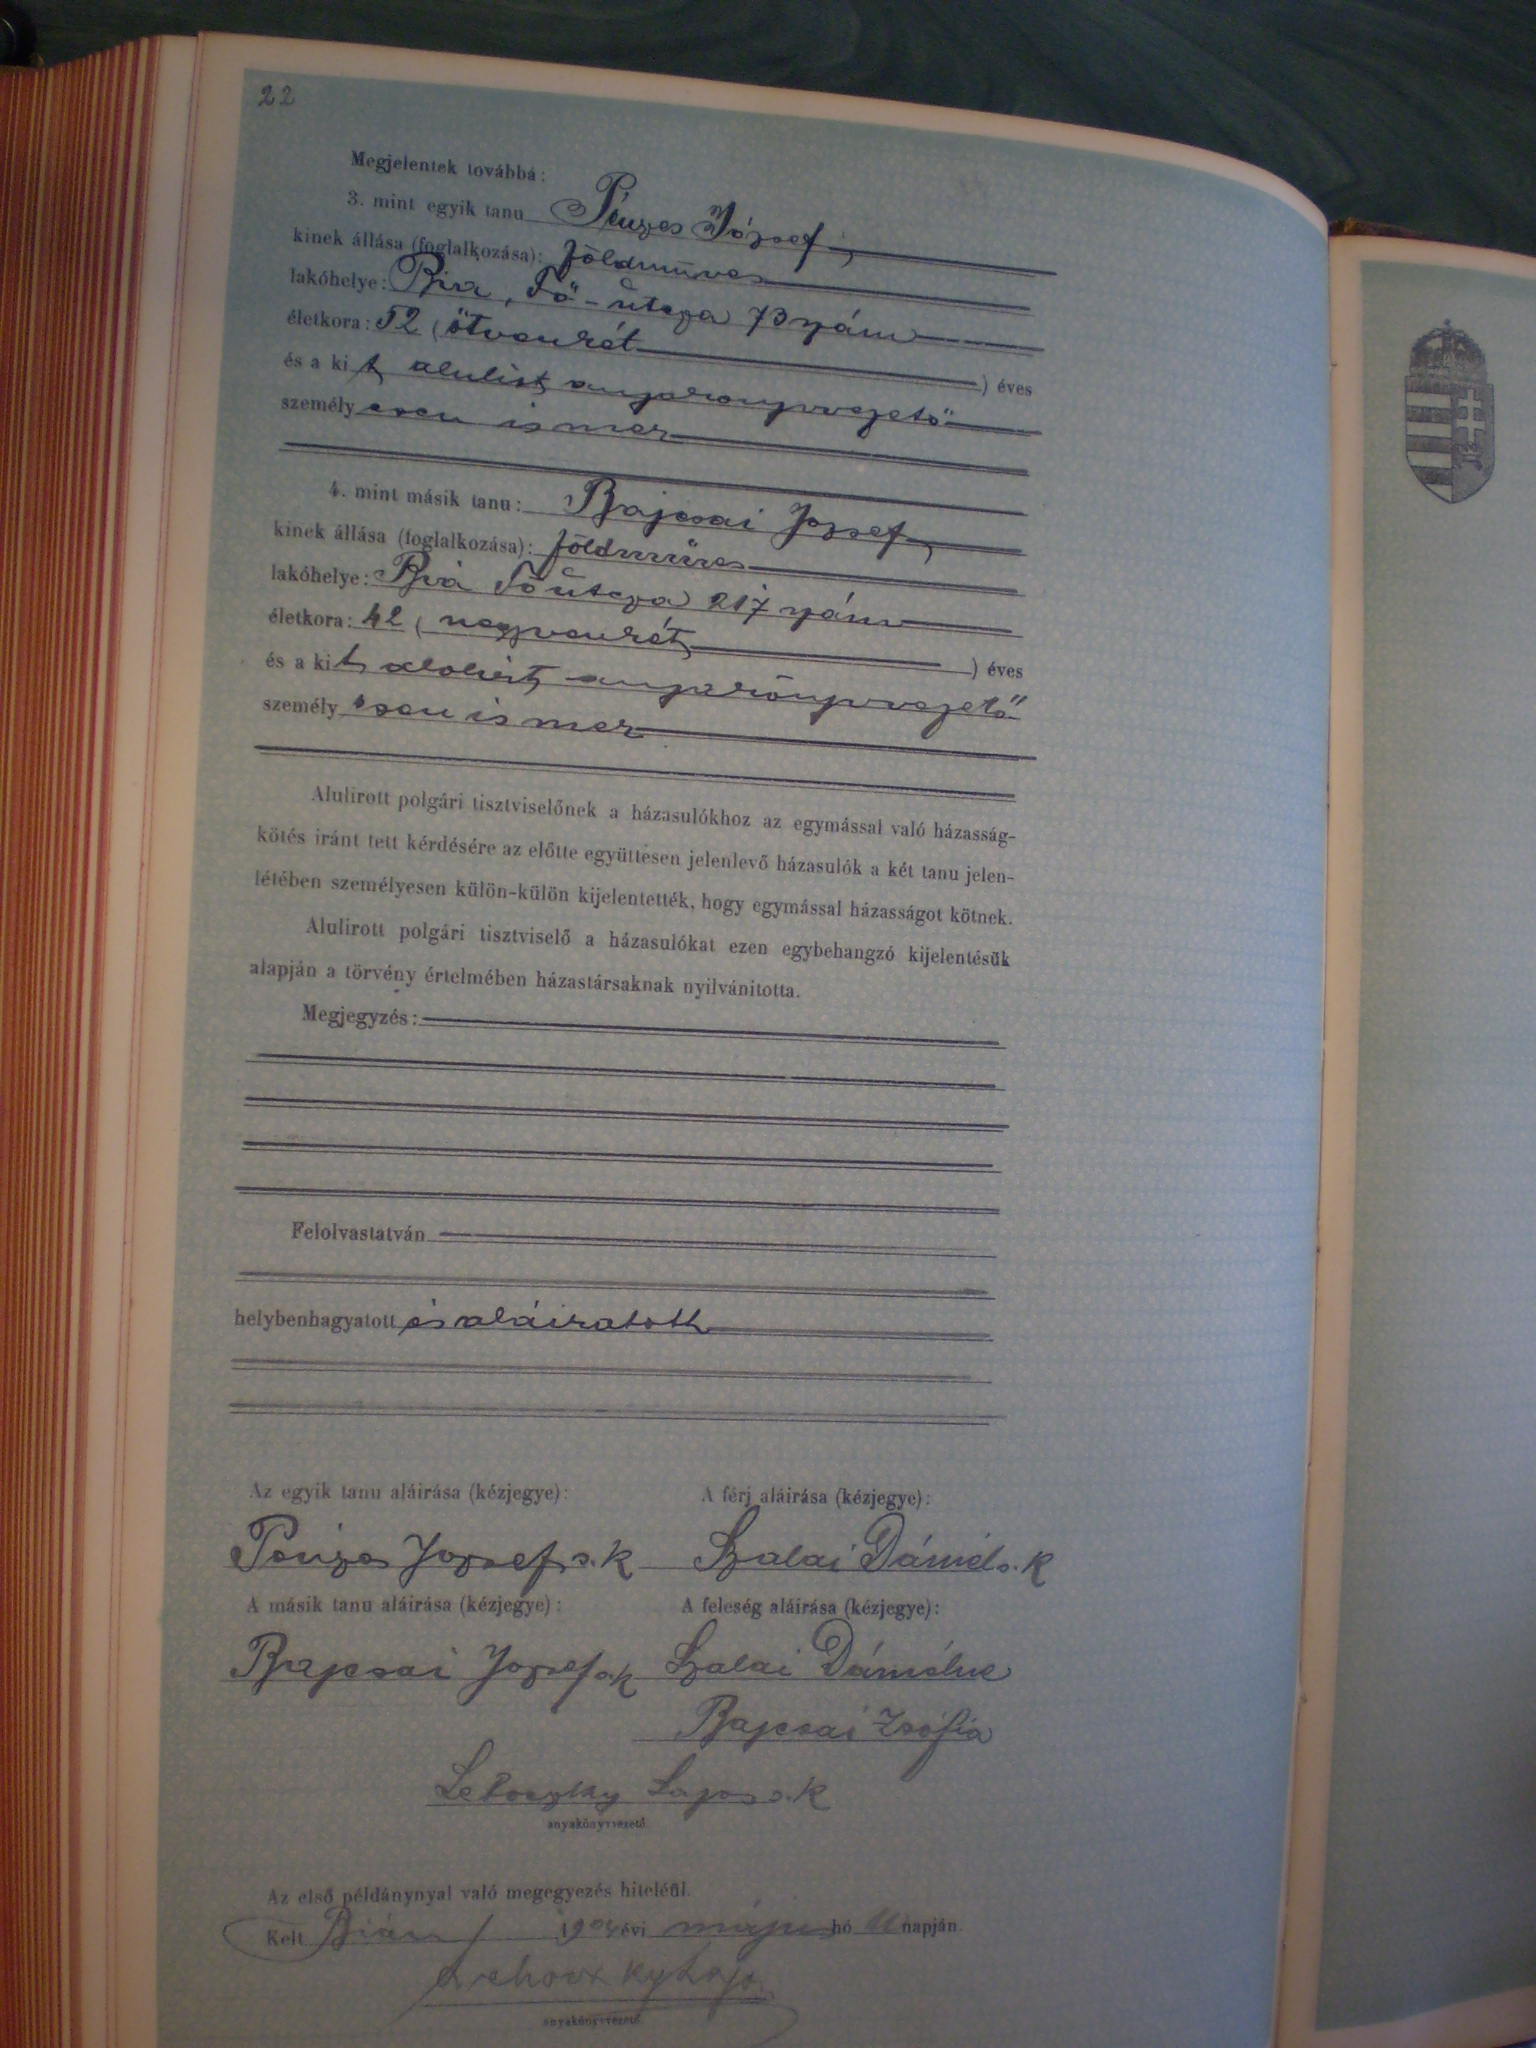 22
Megjelentek továbbá:
3. mint egyik tanu Pénzes József
kinek állása (foglalkozása): földmüves
lakóhelye: Bia, Fő-utcza 73 szám
életkora: 52 (ötvenkét ) éves
és a kit alulirt anyakönyvvezető
személyesen ismer
4. mint másik tanu: Bajcsai József
kinek állása (foglalkozása): földmüves
lakóhelye: Bia Főutcza 217 szám
életkora: 42 (negyvenkét ) éves
és a kit alulirt anyakönyvvezető
személyesen ismer
Alulirott polgári tisztviselőnek a házasulókhoz az egymással való házasság-
kötés iránt tett kérdésére az előtte együttesen jelenlevő házasulók a két tanu jelen-
létében személyesen külön-külön kijelentették, hogy egymással házasságot kötnek.
Alulirott polgári tisztviselő a házasulókat ezen egybehangzó kijelentésük
alapján a törvény értelmében házastársaknak nyilvánitotta.
Megjegyzés:
Felolvastatván
helybenhagyatott és aláiratott
Az egyik tanu aláirása (kézjegye): A férj aláirása (kézjegye):
Pénzes József s.k Szalai Dániel s.k
A másik tanu aláirása (kézjegye): A feleség aláirása (kézjegye):
Bajcsai József s.k Szalai Dánielné
Bajcsai Zsófia
Lajos s.k
anyakönyvvezető
Az első példánynyal való megegyezés hiteléül.
Kelt Bián 1904 évi május hó 11 napján.
anyakönyvvezető